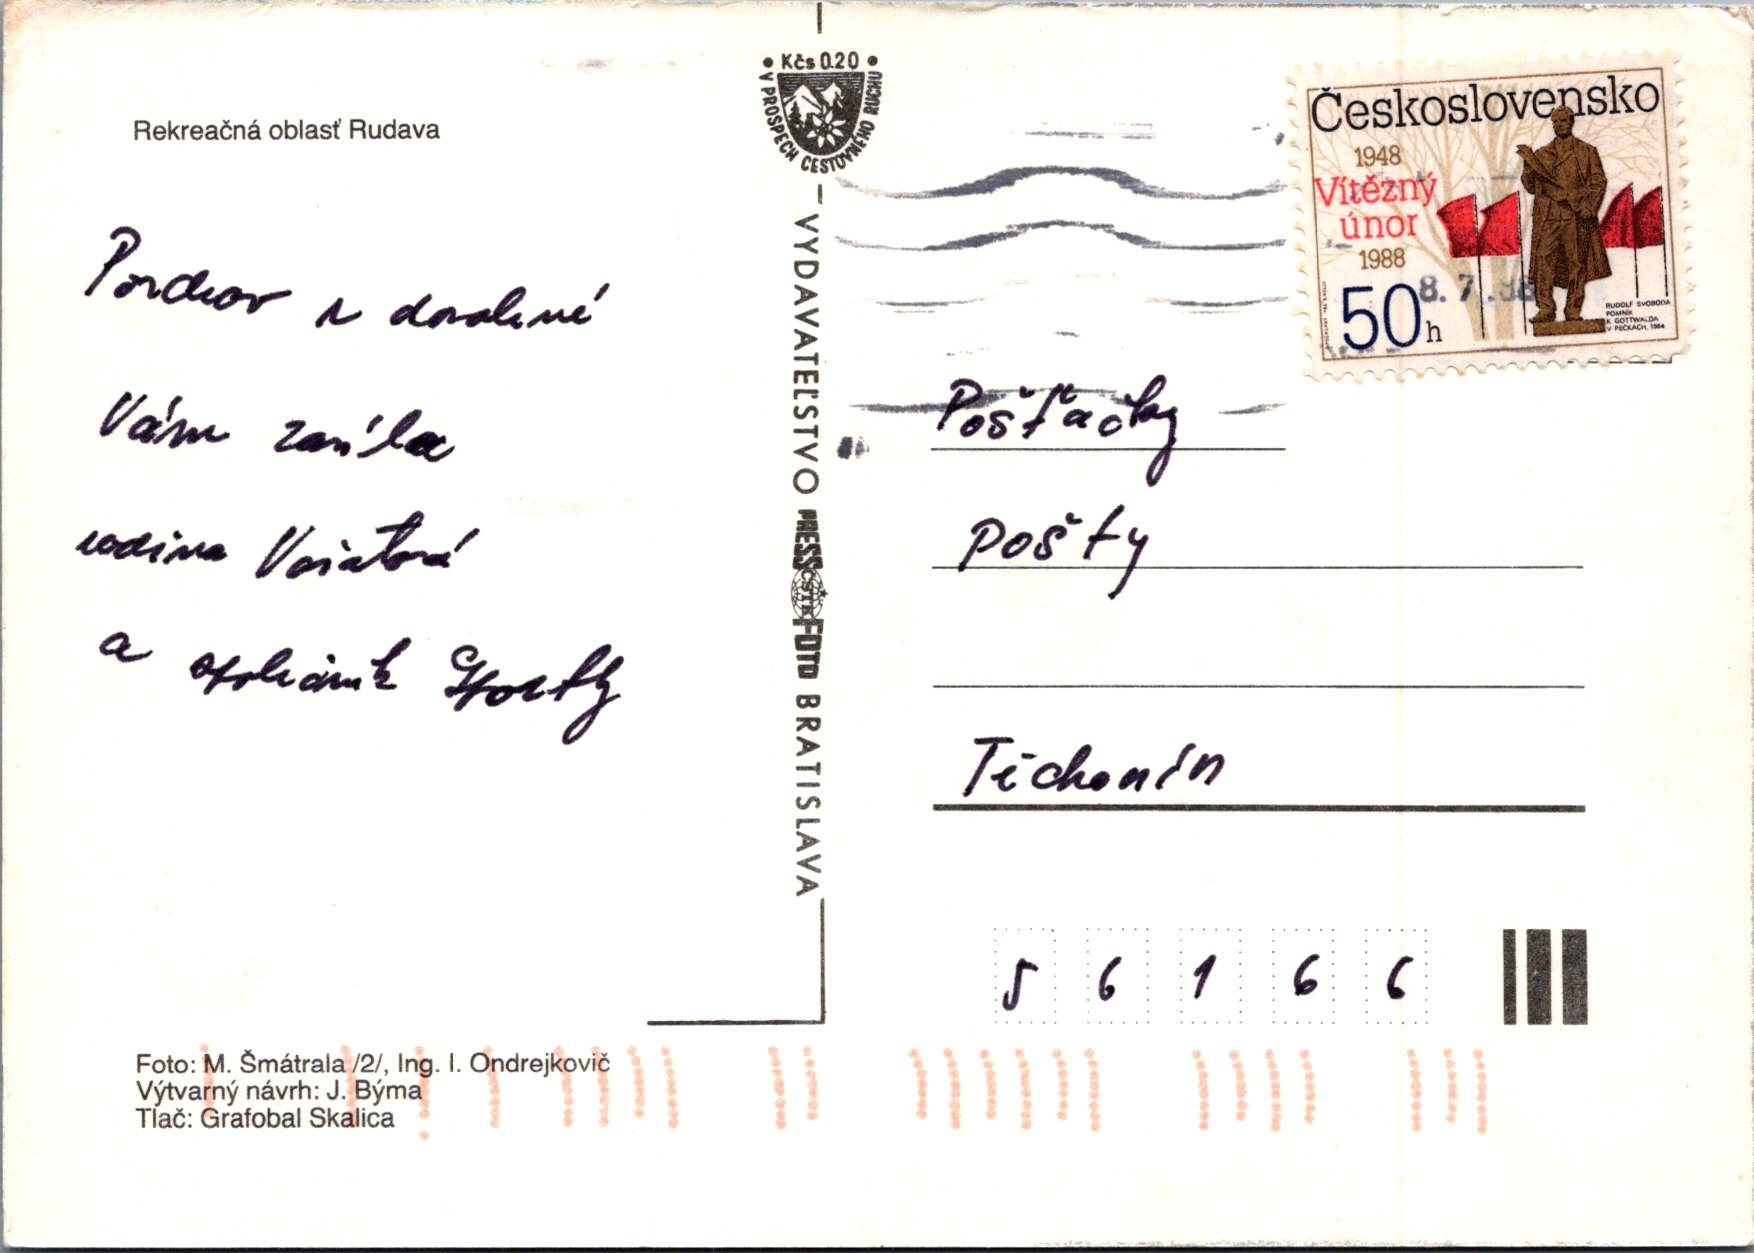 Rekreačná oblasť Rudava
Pozdrav z dovolené
Vám zasílá
rodina
a
Kčs 0.20
V PROSPĚCH CESTOVNÉHO RUCHU
VYDAVATEĽSTVO PRESSFOTO BRATISLAVA
ČSTK
Československo
1948
Vítězný
únor
1988
50h
RUDOLF SVOBODA
POMNÍK
K. GOTTWALDA
V PEČKÁCH, 1984
8.7.88
Pošťačky
pošty
Těchonín
5 6 1 6 6
Foto: M. Šmátrala /2/, Ing. I. Ondrejkovič
Výtvarný návrh: J. Býma
Tlač: Grafobal Skalica